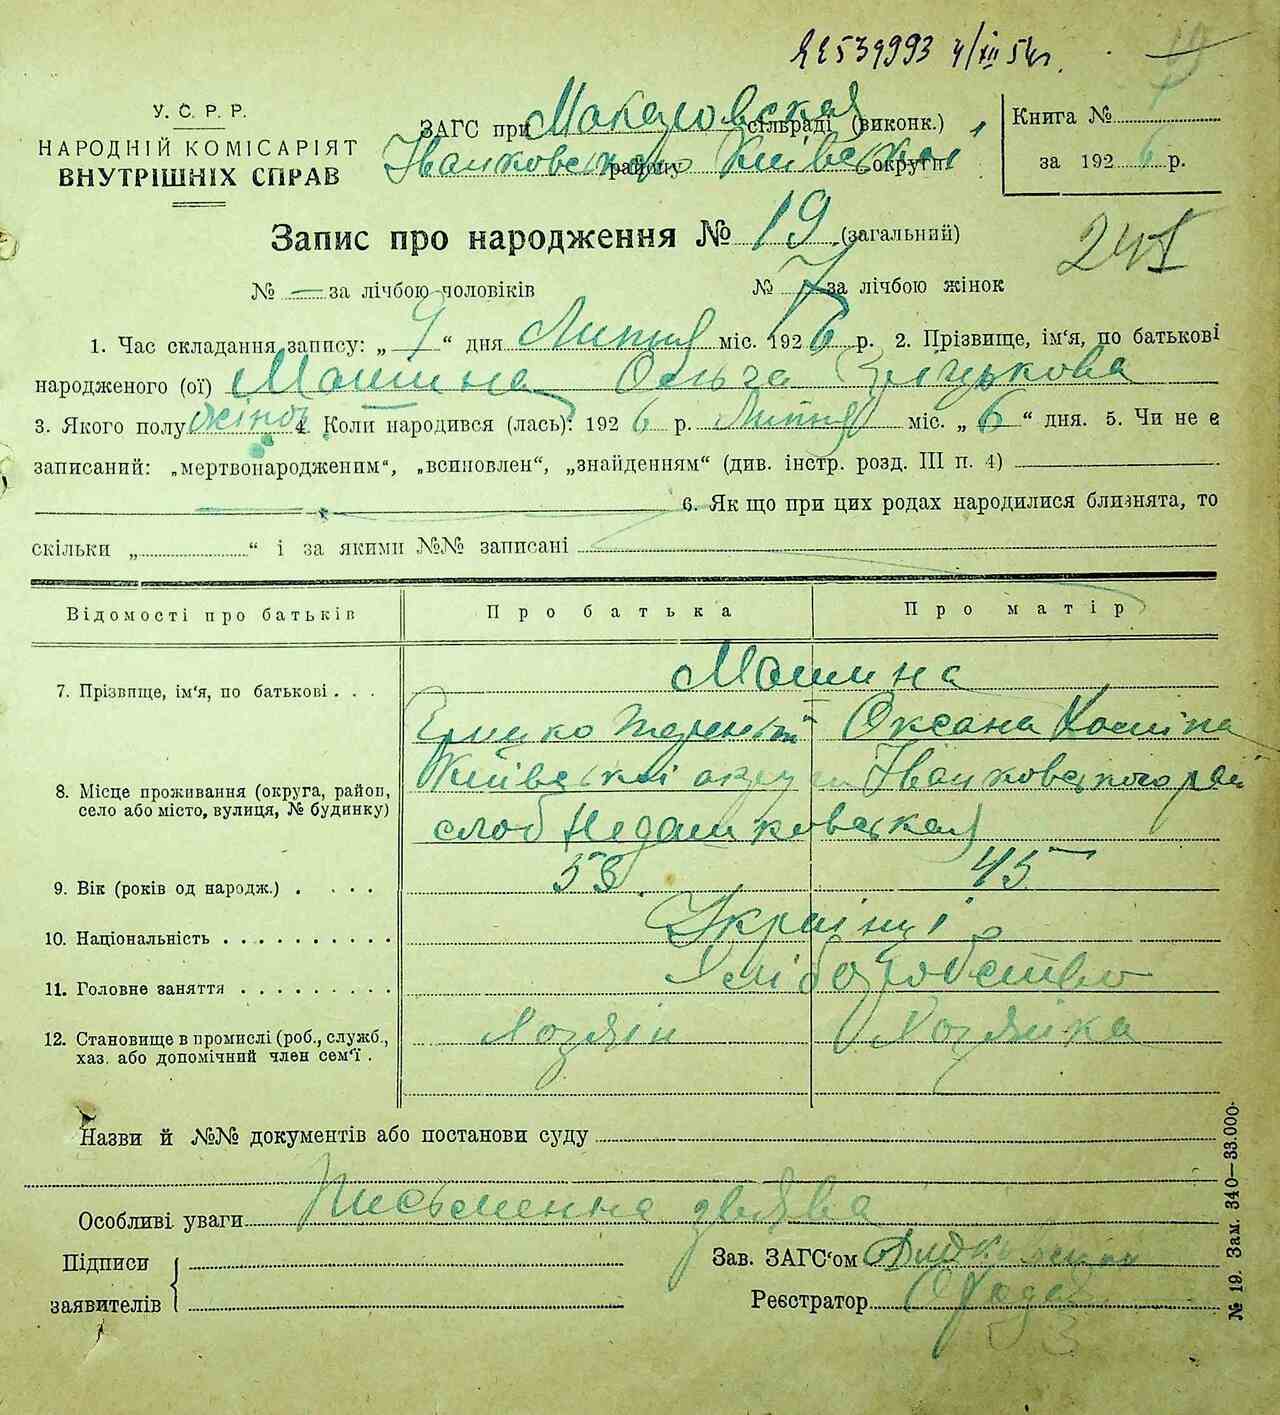 539993 4/XII 54 г.
У. С. Р. Р.
НАРОДНІЙ КОМІСАРІЯТ
ВНУТРІШНІХ СПРАВ
ЗАГС при Макаловская сільраді (виконк.)
Іванковського району Київської округи
Книга №
за 1926 р.
Запис про народження № 19 (загальний)
241
№ — за лічбою чоловіків № 7 за лічбою жінок
1. Час складання запису: „ 9 “ дня Липня міс. 1926 р. 2. Прізвище, ім‘я, по батькові
народженого (ої) Мошина Ольга
3. Якого полу жіноч 4. Коли народився (лась): 1926 р. Липня міс. „ 6 “ дня. 5. Чи не є
записаний: „мертвонародженим“, „всиновлен“, „знайденням“ (див. інстр. розд. III п. 4)
6. Як що при цих родах народилися близнята, то
скільки „ “ і за якими №№ записані
Відомості про батьків Про батька Про матір
7. Прізвище, ім‘я, по батькові . . . Мошина
Грицко Оксана
8. Місце проживання (округа, район, село або місто, вулиця, № будинку) Київської округи Іванковського рай
слоб Недашковская
9. Вік (років од народж.) . . . . 53 45
10. Національність . . . . . . . . . . Українці
11. Головне заняття . . . . . . . . . Хліборобство
12. Становище в промислі (роб., служб., хаз. або допомічний член сем‘ї . Хозяін Хозяйка
Назви й №№ документів або постанови суду
Особливі уваги Письменна заява
Підписи
заявителів
Зав. ЗАГС‘ом
Реєстратор
№ 19. Зам. 340—33.000.